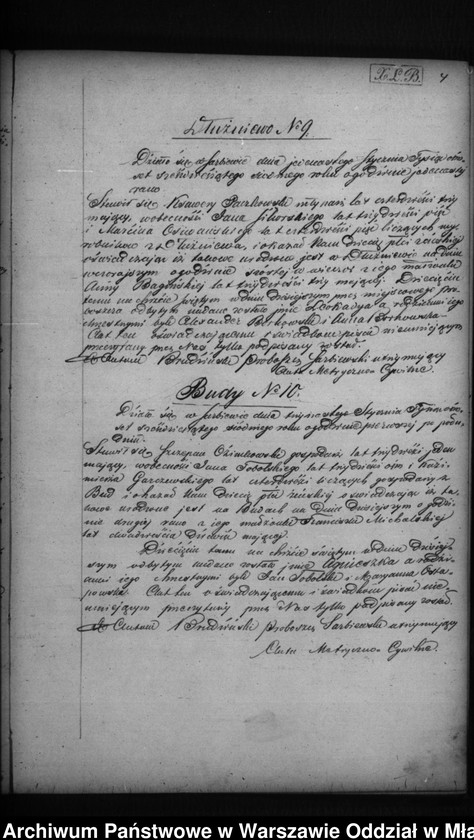 X. L. B. 4
Dłużniewo N° 9.
Działo się w Sarbiewie dnia jedenastego Stycznia Tysiąc ośm-
set sześćdziesiątego siódmego roku o godzinie
rano
Stawił się Xawery Paczkowski młynarz lat czterdzieści trzy
mający, w obecności Jana lat trzydzieści pięć
i Marcina lat czterdzieści pięć liczących wy-
robników z Dłużniewa, i okazał Nam dziecię płci
oświadczając iż takowe urodzone jest w Dłużniewie na dniu
wczorajszym o godzinie szóstej w wieczór z jego małżonki
Anny lat trzydzieści trzy mającej. Dziecięciu
temu na chrzcie świętym w dniu dzisiejszym przez miejscowego pro-
boszcza odbytym nadane zostało imię a rodzicami jego
chrzestnymi byli Alexander i Anna
Akt ten oświadczającemu i świadkom pisać nieumiejącym
przeczytany przez Nas tylko podpisany został.
X Antoni Proboszcz Sarbiewski utrzymujący
Akta Metryczno-Cywilne.
Budy N° 10.
Działo się w Sarbiewie dnia trzynastego Stycznia Tysiąc ośm-
set sześćdziesiątego siódmego roku o godzinie pierwszej po połu-
dniu.
Stawił się Szczepan gospodarz lat trzydzieści jeden
mający, w obecności Jana Sobolskiego lat trzydzieści ośm i Kazi-
mierza Garczewskiego lat czterdzieści liczących gospodarzy z
Bud i okazał Nam dziecię płci żeńskiej oświadczając iż ta-
kowe urodzone jest na Budach na dniu dzisiejszym o godzi-
nie drugiej rano z jego małżonki Franciszki Michalskiej
lat dwadzieścia dziewięć mającej.
Dziecięciu temu na chrzcie świętym w dniu dzisiej-
szym odbytym nadane zostało imię Agnieszka a rodzi-
cami jego chrzestnymi byli Jan Sobolski i Maryanna Osta-
powska. Akt ten oświadczającemu i świadkom pisać nie-
umiejącym przeczytany przez Nas tylko podpisany został.
X Antoni Proboszcz Sarbiewski utrzymujący
Akta Metryczno-Cywilne.
Archiwum Państwowe w Warszawie Oddział w Mła